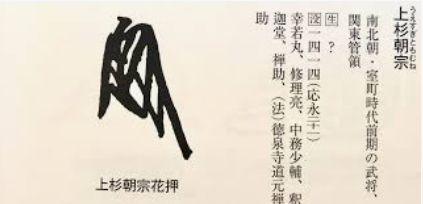 上杉朝宗
うえすぎともむね
南北朝・室町時代前期の武将、
関東管領
生 ?
没 一四一四(応永二一)
幸若丸、修理亮、中務少輔、釈
迦堂、禅助、(法)徳泉寺道元禅
助
上杉朝宗花押